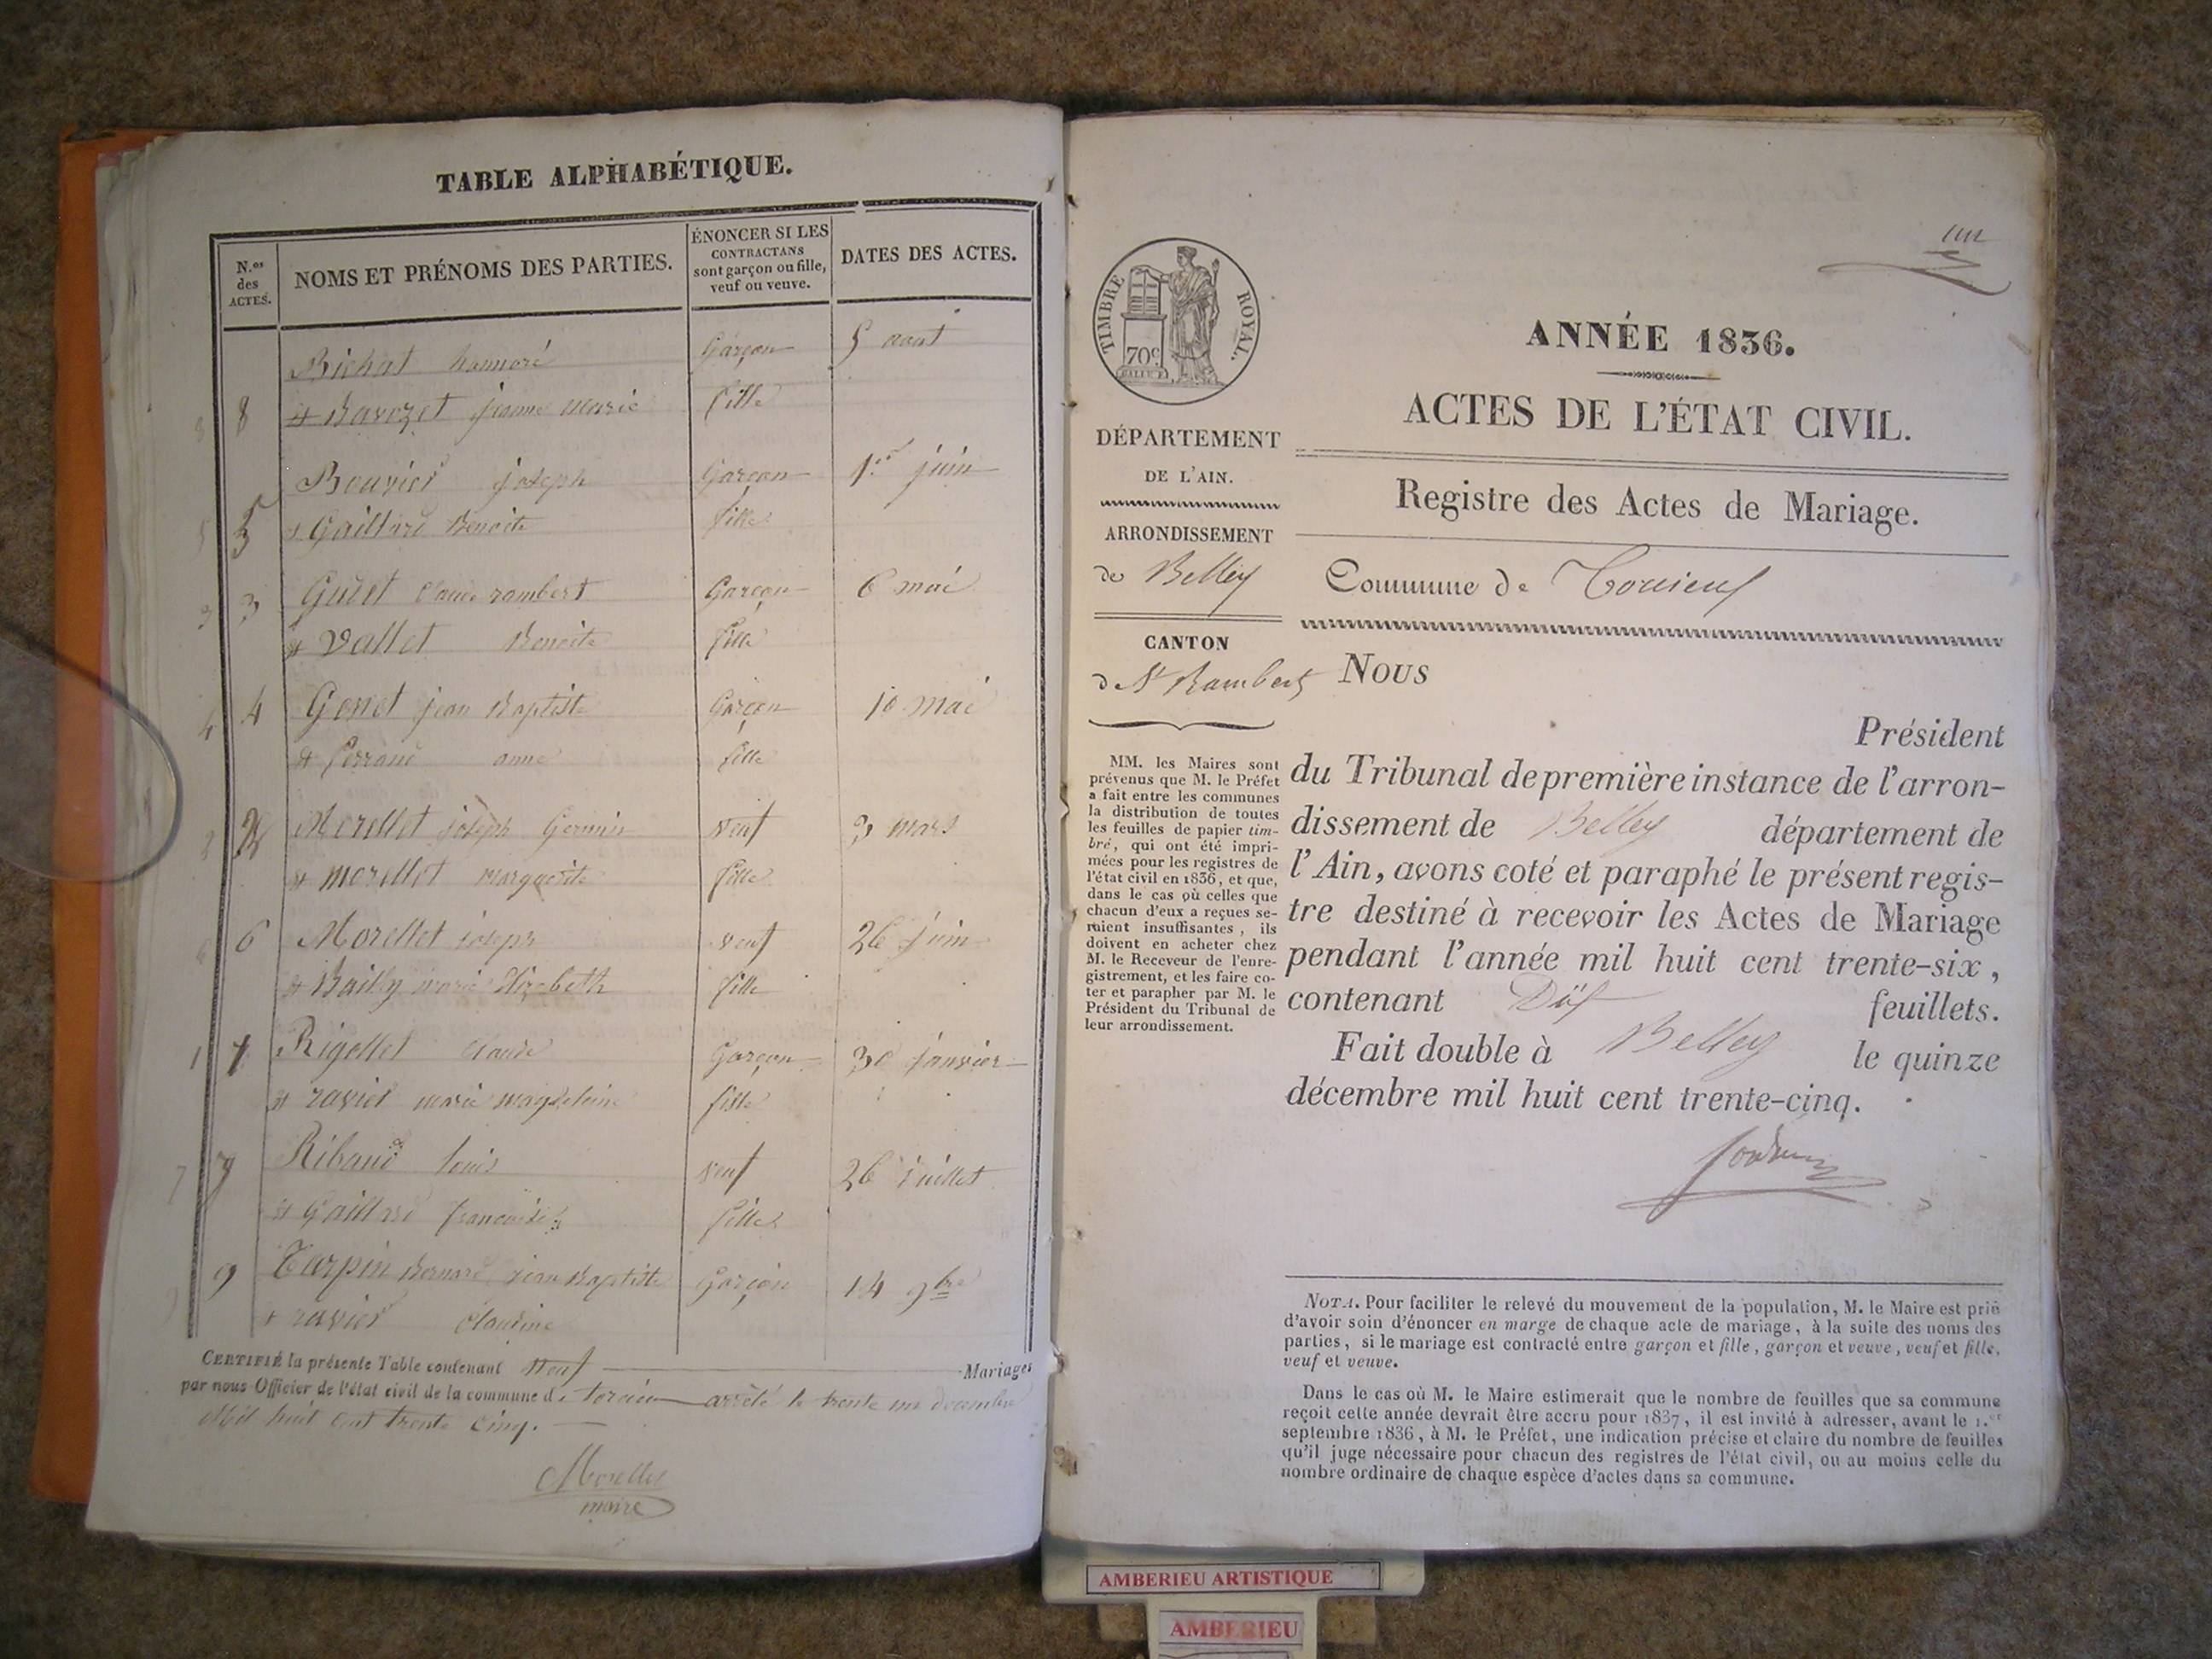 TABLE ALPHABÉTIQUE.
N.os des ACTES.
NOMS ET PRÉNOMS DES PARTIES.
ÉNONCER SI LES
CONTRACTANS
sont garçon ou fille,
veuf ou veuve.
DATES DES ACTES.
Bichat honnoré Garçon 5 aout
8 8 Ravozet jeanne marie fille
Bouvier joseph Garçon 1er juin
5 5 Gaillard Benoite fille
3 3 Guiet Claude rambert Garçon 6 mai
Vallet Benoite fille
4 4 Gonet jean Baptiste Garçon 10 mai
anne fille
2 Morellet joseph Germain veuf 3 mars
morellet marguerite fille
6 6 Morellet joseph veuf 26 juin
Bailly marie Elizabeth fille
1 1 Rigollet Claude Garçon 30 janvier
ravier marie magdeleine fille
7 7 Ribaud louis veuf 26 juillet
Gaillard francoise fille
9 9 Turpin Bernard jean Baptiste Garçon 14 9bre
ravier Claudine
CERTIFIÉ la présente Table contenant neuf Mariages
par nous Officier de l'état civil de la commune de torcieu arrêté le trente un decembre
Mil huit cent trente cinq.
Morellet
maire
un
TIMBRE ROYAL.
70c
ANNÉE 1836.
ACTES DE L'ÉTAT CIVIL.
Registre des Actes de Mariage.
Commune de Torcieu
DÉPARTEMENT
DE L'AIN.
ARRONDISSEMENT
de Belley
CANTON
de St Rambert
MM. les Maires sont
prévenus que M. le Préfet
a fait entre les communes
la distribution de toutes
les feuilles de papier tim-
bré, qui ont été impri-
mées pour les registres de
l'état civil en 1836, et que,
dans le cas où celles que
chacun d'eux a reçues se-
raient insuffisantes, ils
doivent en acheter chez
M. le Receveur de l'enre-
gistrement, et les faire co-
ter et parapher par M. le
Président du Tribunal de
leur arrondissement.
Nous
Président
du Tribunal de première instance de l'arron-
dissement de Belley département de
l'Ain, avons coté et paraphé le présent regis-
tre destiné à recevoir les Actes de Mariage
pendant l'année mil huit cent trente-six,
contenant Dix feuillets.
Fait double à Belley le quinze
décembre mil huit cent trente-cinq.
NOTA. Pour faciliter le relevé du mouvement de la population, M. le Maire est prié
d'avoir soin d'énoncer en marge de chaque acte de mariage, à la suite des noms des
parties, si le mariage est contracté entre garçon et fille, garçon et veuve, veuf et fille,
veuf et veuve.
Dans le cas où M. le Maire estimerait que le nombre de feuilles que sa commune
reçoit cette année devrait être accru pour 1837, il est invité à adresser, avant le 1.er
septembre 1836, à M. le Préfet, une indication précise et claire du nombre de feuilles
qu'il juge nécessaire pour chacun des registres de l'état civil, ou au moins celle du
nombre ordinaire de chaque espèce d'actes dans sa commune.
AMBERIEU ARTISTIQUE
AMBERIEU